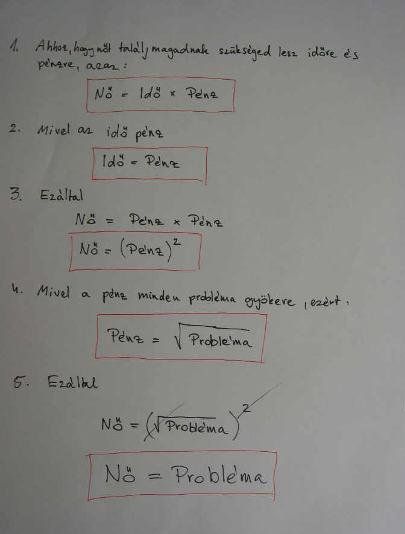 1. Ahhoz, hogy nőt találj magadnak szükséged lesz időre és
pénzre, azaz:
Nő = Idő × Pénz
2. Mivel az idő pénz
Idő = Pénz
3. Ezáltal
Nő = Pénz × Pénz
Nő = (Pénz)²
4. Mivel a pénz minden probléma gyökere, ezért:
Pénz = √Probléma
5. Ezáltal
Nő = (√Probléma)²
Nő = Probléma